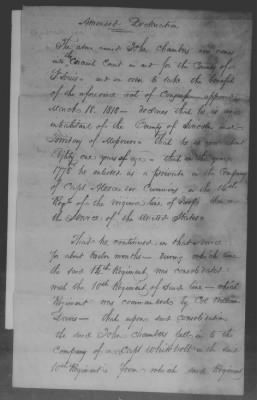 Amended Declaration
The above named John Chambers in open
Circuit Court in and for the County of
in order to take the benefit
of the aforesaid act of Congress approved
March 18. 1818 — declares that he is an
inhabitant of the County of Lincoln and
Territory of Missouri — that he is about
Eighty one years of age — that in the year
1776 he enlisted as a private in the Company
of Capt Alexander Cummins in the 14th
Regt of the Virginia line of troops then in
the Service of the United States —
That he continued in that service
for about twelve months — during which time
the said 14th Regiment was consolidated
with the 10th Regiment of said line — which
Regiment was commanded by Col William
Davis — that upon such consolidation
the said John Chambers fell in to the
Company of a Capt in the said
10th Regiment from which said Regiment